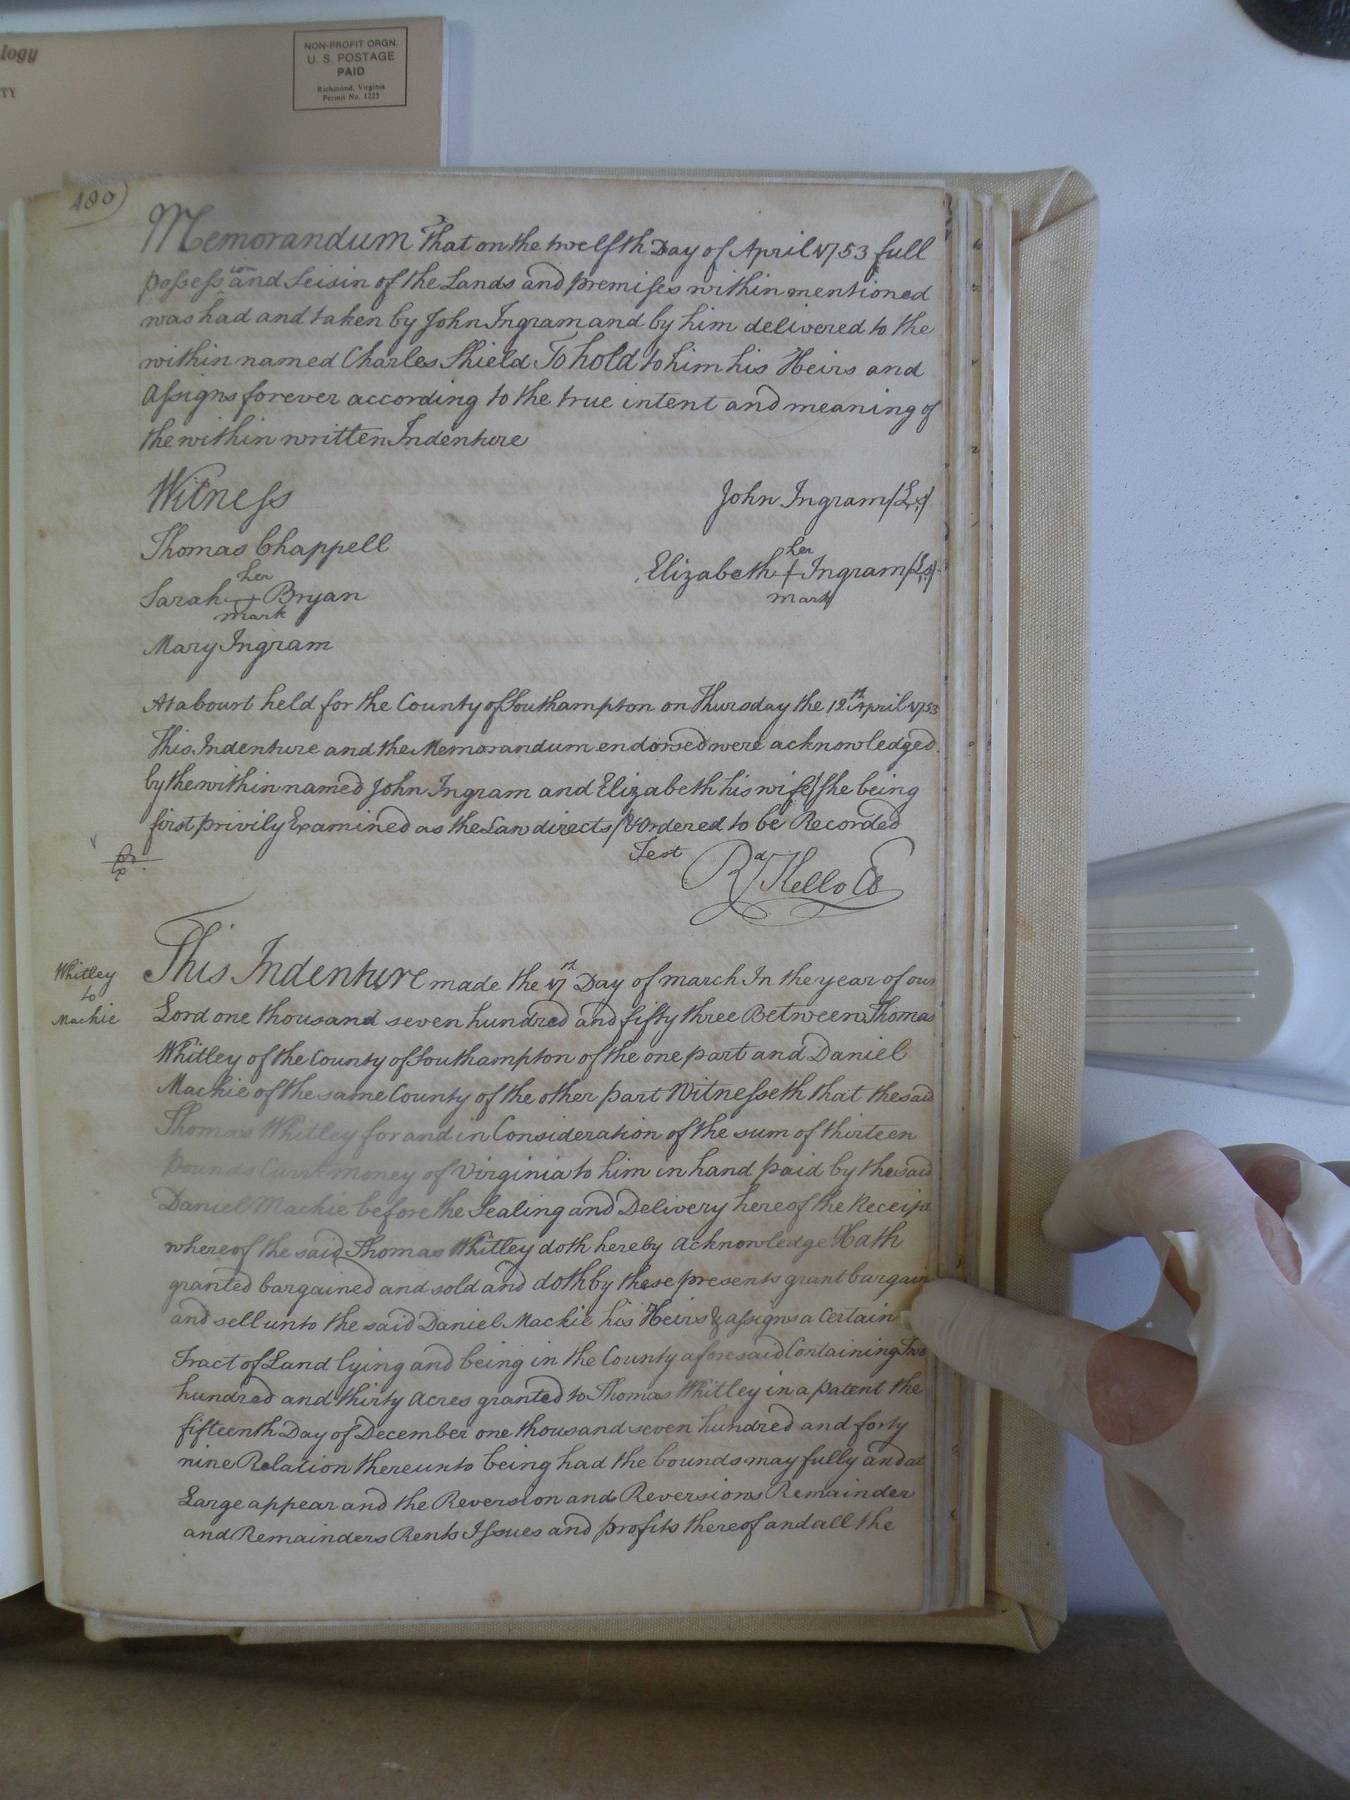 logy
TY
NON-PROFIT ORGN.
U. S. POSTAGE
PAID
Richmond, Virginia
Permit No. 1225
180
Memorandum That on the twelfth Day of April 1753 full
possess ion and Seisin of the Lands and premises within mentioned
was had and taken by John Ingram and by him delivered to the
within named Charles Shield To hold to him his Heirs and
Assigns forever according to the true intent and meaning of
the within written Indenture
Witness
John Ingram (Ls)
Thomas Chappell
her
Elizabeth + Ingram (Ls)
mark
her
Sarah + Bryan
mark
Mary Ingram
At a Court held for the County of Southampton on Thursday the 12th April 1753
This Indenture and the Memorandum endorsed were acknowledged
by the within named John Ingram and Elizabeth his wife (she being
first privily Examined as the Law directs) & Ordered to be Recorded
Test Rd Kello Cl
Whitley
to
Mackie
This Indenture made the 17th Day of march In the year of our
Lord one thousand seven hundred and fifty three Between Thomas
Whitley of the County of Southampton of the one part and Daniel
Mackie of the same County of the other part Witnesseth that the said
Thomas Whitley for and in Consideration of the sum of thirteen
pounds Curr.t money of Virginia to him in hand paid by the said
Daniel Mackie before the Sealing and Delivery hereof the Receipt
whereof the said Thomas Whitley doth hereby acknowledge Hath
granted bargained and sold and doth by these presents grant bargain
and sell unto the said Daniel Mackie his Heirs & assigns a Certain
Tract of Land lying and being in the County aforesaid Containing Two
hundred and thirty Acres granted to Thomas Whitley in a patent the
fifteenth Day of December one thousand seven hundred and forty
nine Relation thereunto being had the bounds may fully and at
Large appear and the Reversion and Reversions Remainder
and Remainders Rents Issues and profits thereof and all the